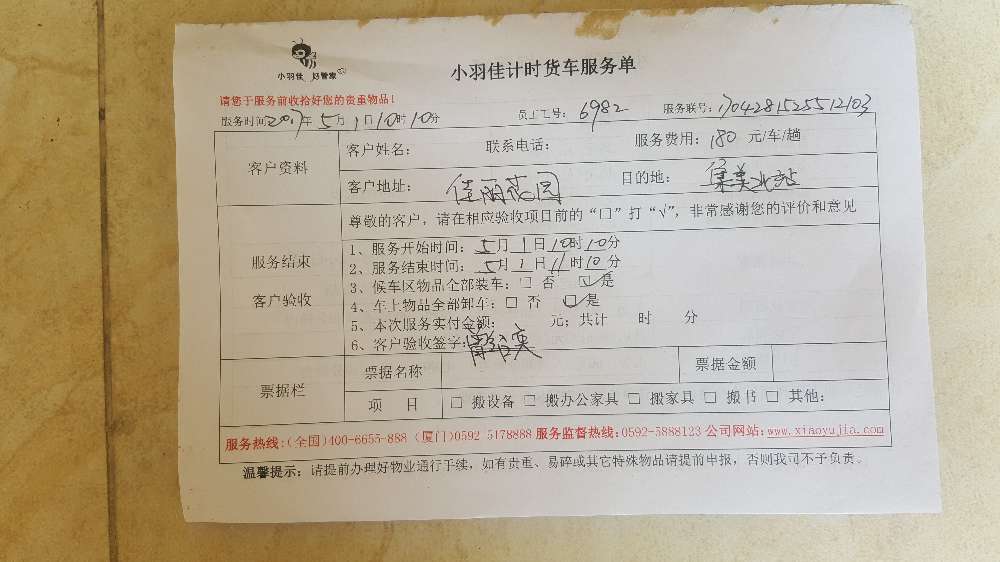 小羽佳 好管家
小羽佳计时货车服务单
请您于服务前收拾好您的贵重物品!
服务时间2017年5月1日10时10分 员工工号: 6982 服务联号: 1704281525512103
客户资料 客户姓名: 联系电话: 服务费用: 180 元/车/趟
客户地址: 佳丽花园 目的地: 集美北站
尊敬的客户, 请在相应验收项目前的“口”打“√”, 非常感谢您的评价和意见
服务结束
客户验收
1、服务开始时间: 5月1日10时10分
2、服务结束时间: 5月1日11时10分
3、候车区物品全部装车: □ 否 ☑ 是
4、车上物品全部卸车: □ 否 ☑ 是
5、本次服务实付金额: 元; 共计 时 分
6、客户验收签字:
票据栏 票据名称 票据金额
项 目 □ 搬设备 □ 搬办公家具 □ 搬家具 □ 搬书 □ 其他:
服务热线:(全国)400-6655-888 (厦门)0592-5178888 服务监督热线:0592-5888123 公司网站:www.xiaoyujia.com
温馨提示: 请提前办理好物业通行手续, 如有贵重、易碎或其它特殊物品请提前申报, 否则我司不予负责。